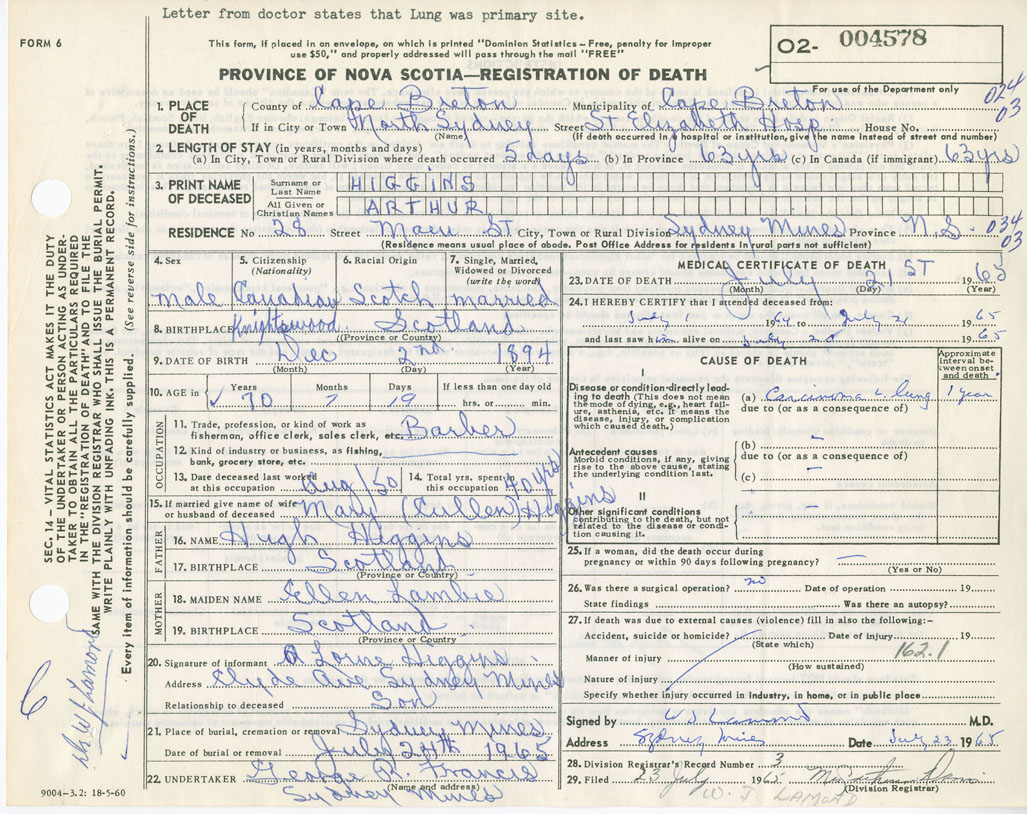 Letter from doctor states that Lung was primary site.
FORM 6
This form, if placed in an envelope, on which is printed "Dominion Statistics – Free, penalty for improper
use $50," and properly addressed will pass through the mail "FREE"
02- 004578
PROVINCE OF NOVA SCOTIA—REGISTRATION OF DEATH
For use of the Department only
024
03
1. PLACE OF DEATH County of Cape Breton Municipality of Cape Breton
If in City or Town North Sydney Street St Elizabeth Hosp. House No.
(Name) (If death occurred in a hospital or institution, give the name instead of street and number)
2. LENGTH OF STAY (in years, months and days)
(a) In City, Town or Rural Division where death occurred 5 days (b) In Province 63 yrs (c) In Canada (if immigrant) 63 yrs
3. PRINT NAME OF DECEASED
Surname or Last Name HIGGINS
All Given or Christian Names ARTHUR
RESIDENCE No 28 Street Main ST City, Town or Rural Division Sydney Mines Province N.S.
034
03
(Residence means usual place of abode. Post Office Address for residents in rural parts not sufficient)
4. Sex
male
5. Citizenship (Nationality)
Canadian
6. Racial Origin
Scotch
7. Single, Married, Widowed or Divorced (write the word)
married
8. BIRTHPLACE Knightswood Scotland
(Province or Country)
9. DATE OF BIRTH Dec 2nd. 1894
(Month) (Day) (Year)
10. AGE in Years Months Days If less than one day old
70 7 19 hrs. or min.
OCCUPATION
11. Trade, profession, or kind of work as
fisherman, office clerk, sales clerk, etc. Barber
12. Kind of industry or business, as fishing,
bank, grocery store, etc.
13. Date deceased last worked at this occupation Aug/50
14. Total yrs. spent in this occupation 40 yrs
15. If married give name of wife
or husband of deceased Mary (Cullen) Higgins
FATHER
16. NAME Hugh Higgins
17. BIRTHPLACE Scotland
(Province or Country)
MOTHER
18. MAIDEN NAME Ellen Lambie
19. BIRTHPLACE Scotland
(Province or Country
20. Signature of informant A Lorne Higgins
Address Clyde Ave Sydney Mines
Relationship to deceased Son
21. Place of burial, cremation or removal Sydney Mines
Date of burial or removal July 24th 1965
22. UNDERTAKER George R. Francis
(Name and address)
Sydney Mines
9004–3.2: 18-5-60
MEDICAL CERTIFICATE OF DEATH
23. DATE OF DEATH July 21 ST 1965
(Month) (Day) (Year)
24. I HEREBY CERTIFY that I attended deceased from:
July 1 1964 to July 21 1965
and last saw him alive on July 20 1965
CAUSE OF DEATH
Approximate interval between onset and death
I
Disease or condition directly leading to death (This does not mean the mode of dying, e.g., heart failure, asthenia, etc. It means the disease, injury, or complication which caused death.)
(a) Carcinoma L. lung 1 year
due to (or as a consequence of)
Antecedent causes
Morbid conditions, if any, giving rise to the above cause, stating the underlying condition last.
(b) –
due to (or as a consequence of)
(c) –
II
Other significant conditions
contributing to the death, but not related to the disease or condition causing it.
25. If a woman, did the death occur during
pregnancy or within 90 days following pregnancy? —
(Yes or No)
26. Was there a surgical operation? no Date of operation 19
State findings Was there an autopsy?
27. If death was due to external causes (violence) fill in also the following:–
Accident, suicide or homicide? Date of injury 19
(State which)
162.1
Manner of injury
(How sustained)
Nature of injury
Specify whether injury occurred in industry, in home, or in public place
Signed by W J Lamond M.D.
Address Sydney Mines Date July 23 1965
28. Division Registrar's Record Number 3
29. Filed 23 July 1965
(Division Registrar)
W. J. LAMOND
SEC. 14 – VITAL STATISTICS ACT MAKES IT THE DUTY
OF THE UNDERTAKER OR PERSON ACTING AS UNDER-
TAKER TO OBTAIN ALL THE PARTICULARS REQUIRED
IN THE "REGISTRATION OF DEATH" AND FILE THE
SAME WITH THE DIVISION REGISTRAR WHO SHALL ISSUE THE BURIAL PERMIT.
WRITE PLAINLY WITH UNFADING INK–THIS IS A PERMANENT RECORD.
Every item of information should be carefully supplied. (See reverse side for instructions.)
Dr W J Lamond
6